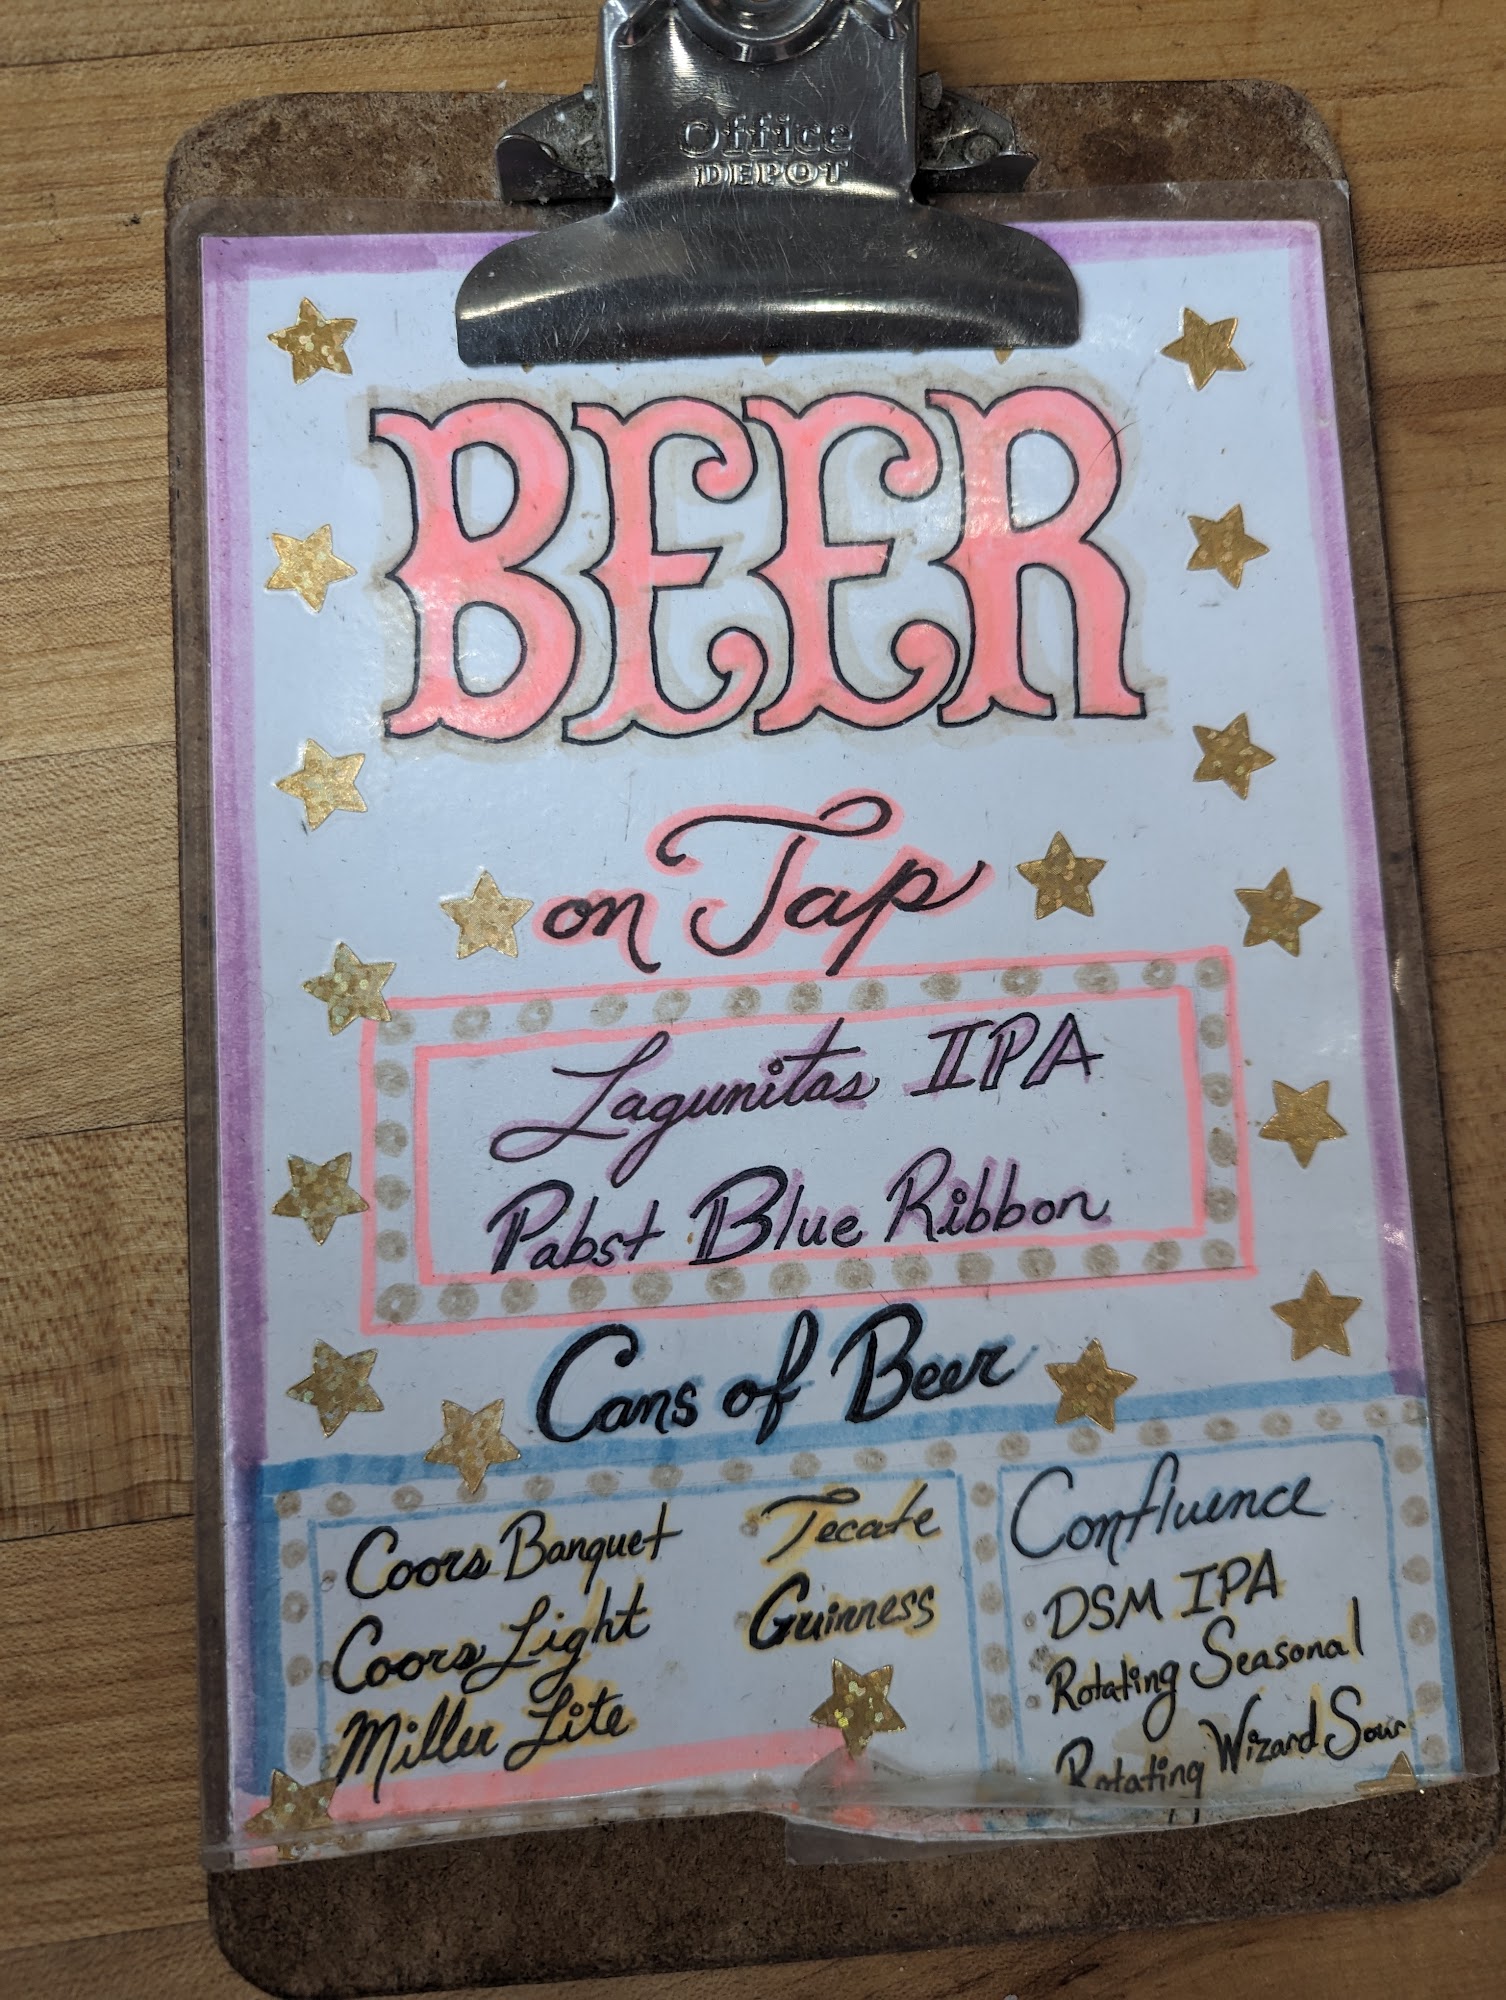 Office
DEPOT
BEER
on Tap
Lagunitas IPA
Pabst Blue Ribbon
Cans of Beer
Coors Banquet
Coors Light
Miller Lite
Tecate
Guinness
Confluence
DSM IPA
Rotating Seasonal
Rotating Wizard Sour